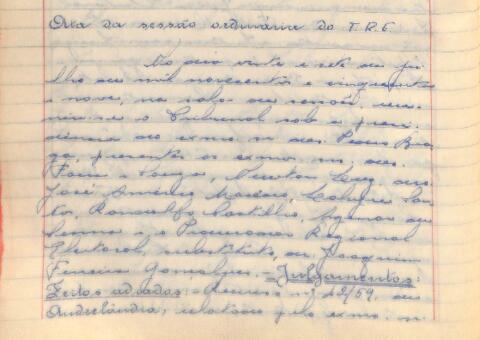 Ata da sessão ordinária do T.R.E.
No dia vinte e sete de ju-
lho de mil novecentos e cinquenta
e nove, na sala de sessões, reu-
niu-se o Tribunal sob a presi-
dência do exmo. sr. des.
presentes os exmos. srs. des.
Faria e Souza, Newton Luz, drs.
José Américo Macedo,
Ranulfo Castilho,
e o Procurador Regional
Eleitoral, substituto, dr. Joaquim
Ferreira Gonçalves. - Julgamentos:
Feitos adiados - Recurso nº 42/59, de
Andrelândia, relatado pelo exmo. sr.